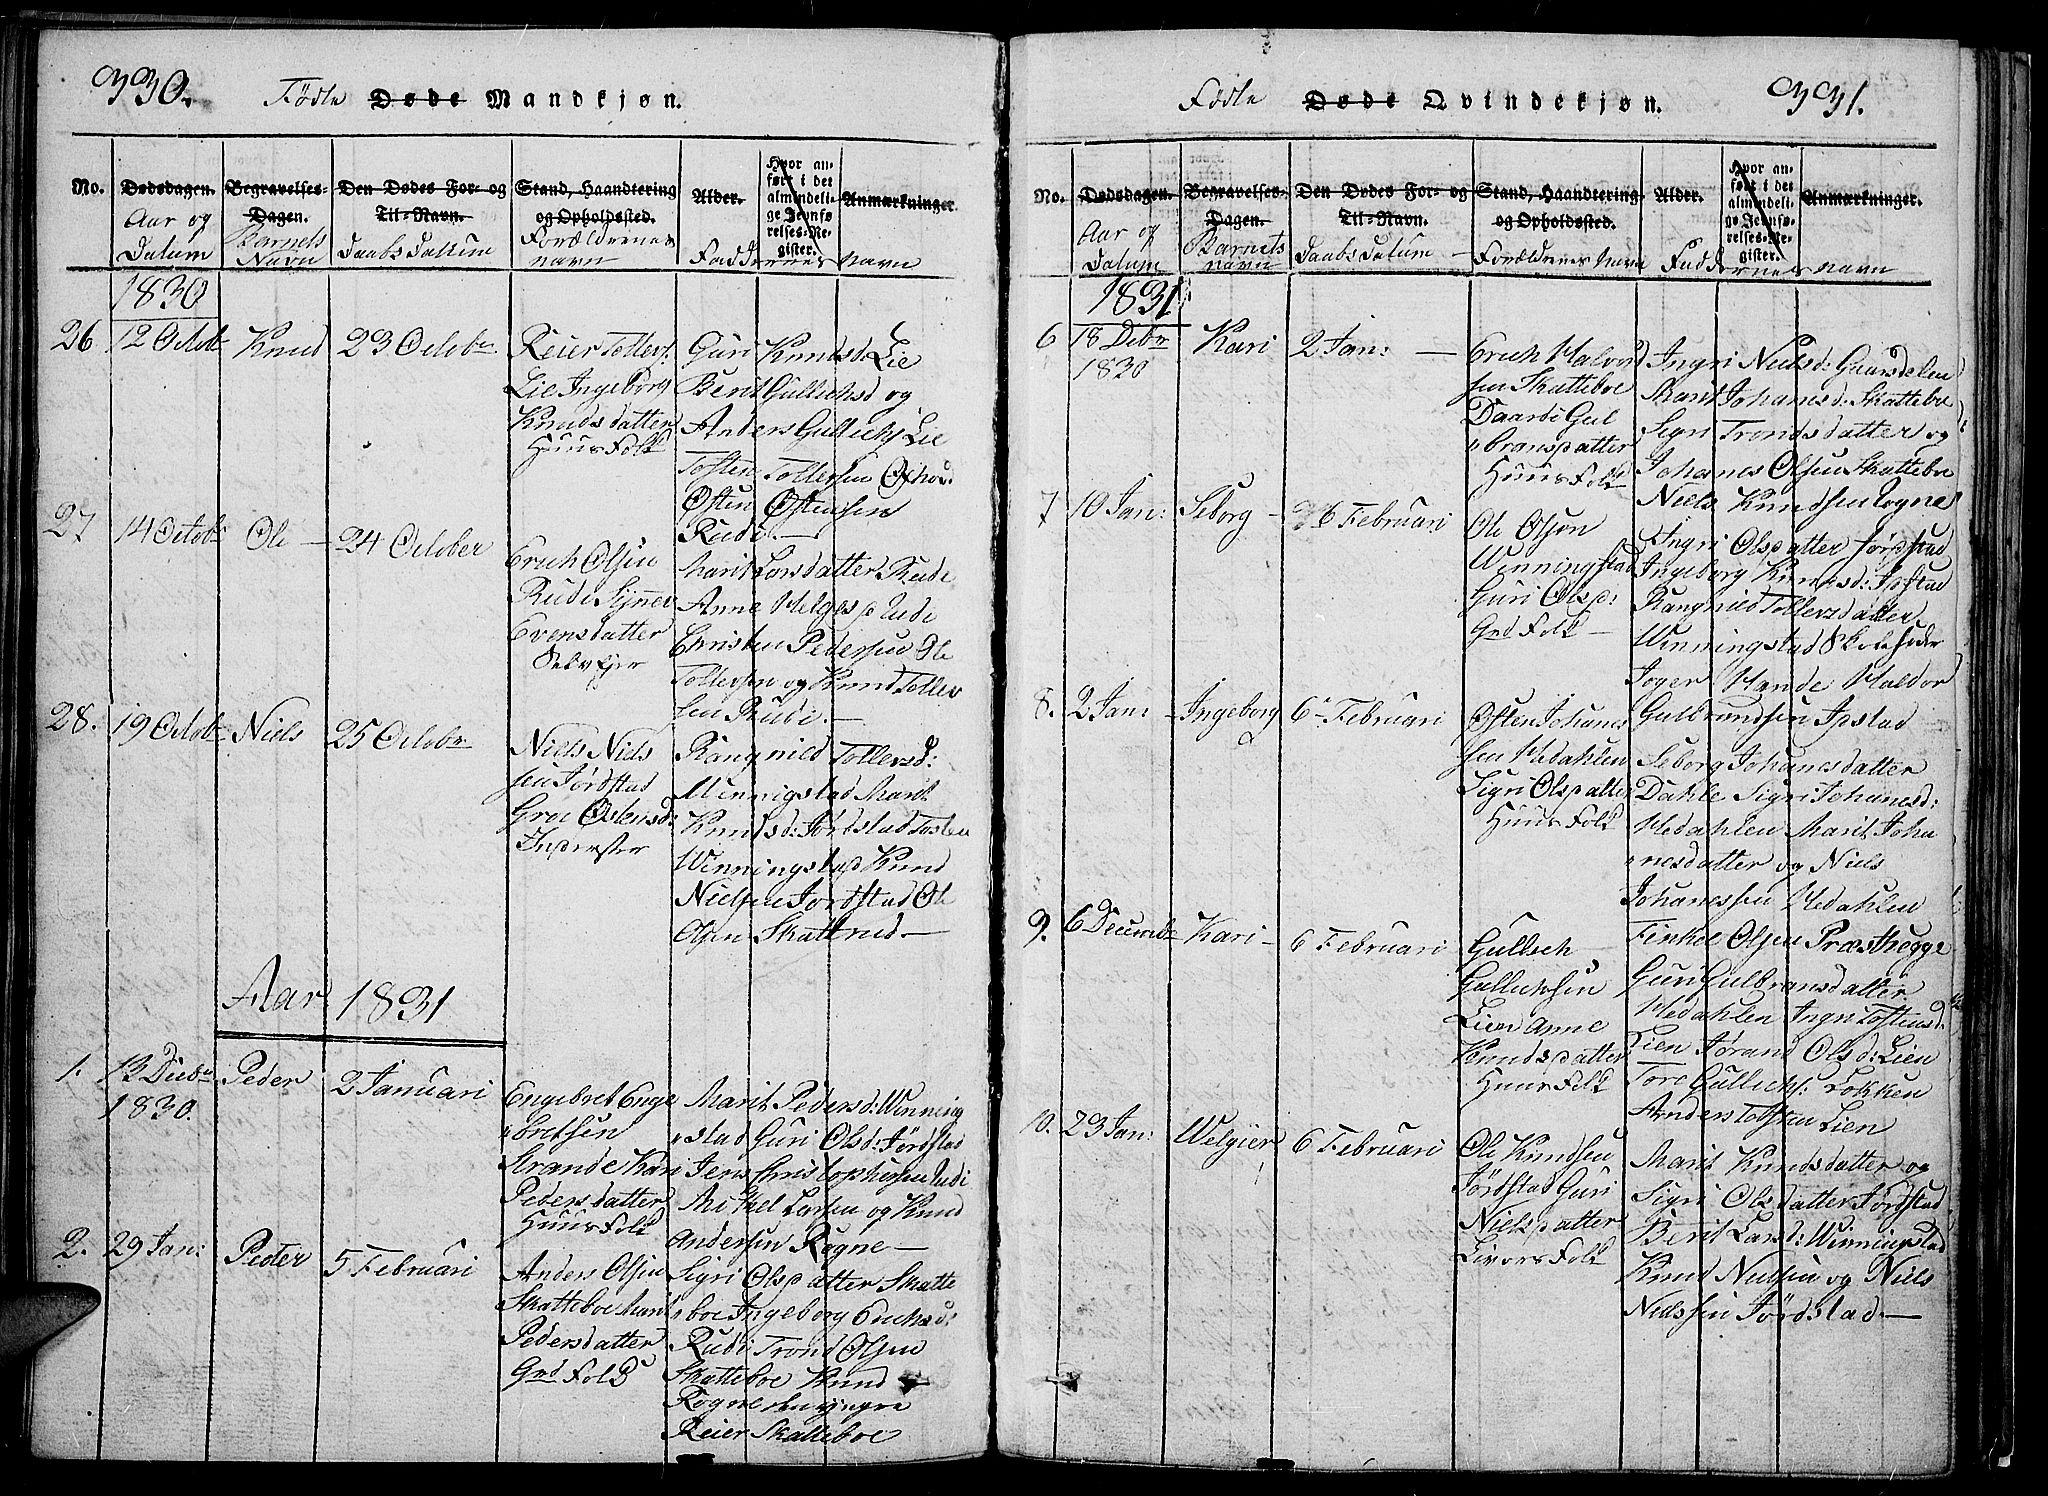 330.
Fødte Døde Mandkjøn.
No.
Dødsdagen.
Aar og
Datum
Begravelses-
Dagen.
Barnets
Navn
Den Dødes For- og
Til-Navn.
Daabs Datum
Stand, Haandtering
og Opholdssted.
Forældrenes
navn
Alder.
Hvor an-
ført i det
almindeli-
ge Jevnfø-
relses-Re-
gister.
Anmærkninger.
Faddernes navn
1830
26 12 Octob Knud 23 Octobr
Reier Tollefs:
Lie Ingeborg
Knuds datter
Huus Folk
Guri Knudsd. Lie
Berit Gullichsd og
Anders Gullichs Lie
Tosten Tollefsen
Østen Østensen
Rudi.
27 14 Octobr Ole 24 October
Erich Olsen
Rudi Synnev
Evensdatter
Selvejer
Marit Lorsdatter Rudi
Anne Helgesd Rudi
Christen Pedersen Ole
Tollefsen og Knud Tollef
sen Rudi.
28. 19 Octobr Niels 25 Octobr
Niels Niels
sen Jørdstad
Groe Ostensd:
Inderster
Rangnied Tollevsd:
Winnigstad Marit
Knudsd: Jørdstad Tosten
Winningstad Knud
Nielsen Jordstad Ole
Olsen Skattrud
Aar 1831
1. 13 Decbr Peder 2 Januari
1830.
Engebret Enge
bretsen
Strande Kari
Pedersdatter
Huus Folk
Marit Pedersd: Winning
stad Guri Olsd: Jørdstad
Jens Christophersen Rudi
Mikkel Larsen og Knud
Andersen Rogne
2. 29 Jan: Peder 5 Februari
Anders Olsen
Skatteboe Marit
Pedersdatter
Grd Folk
Sigri Olsdatter Skatte
boe Ingeborg Erichsd:
Rudi Trond Olsen
Skatteboe Knud
Rogne den yngre
Reier Skatteboe
331.
Fødte Døde Qvindekjøn.
No.
Dødsdagen.
Aar og
Datum
Begravelses-
Dagen.
Barnets
navn
Den Dødes For- og
Til-Navn.
Daabs Datum
Stand, Haandtering
og Opholdssted.
Forældrenes Navn
Alder.
Hvor an-
ført i det
almindeli-
ge Jevnfø-
relses-Re-
gister.
Anmærkninger.
Faddernes navn
1831
6 18 Debr Kari 2 Jan:
1830
Erich Halvor
sen Skatteboe
Daardi Gul
bransdatter
Huus Folk
Ingri Nielsd:
Marit Johanesd: Skatteboe
Sigri Trondsdatter og
Johanes Olsen Skatteboe
Niels Knudsen Rogne
7 10 Jan: Seborg 6 Februari
Ole Olson
Winningstad
Guri Olsd:
Grd Folk
Ingri Olsdatter Jordstad
Ingeborg Knudsd: Ipstad
Rangnied Tollevsdatter
Winningstad Skoleholder
Joger Hande Haldor
Gulbrandsen Ipstad
8. 2 Jan: Ingeborg 6 Februari
Østen Johanes
sen Hedahlen
Sigri Olsdatter
Huus Folk
Seborg Johanesdatter
Dahle Sigri Johanesd:
Hedahlen Marit Joha
nesdatter og Niels
Johanessen Hedahlen
9. 6 Decembr Kari 6 Februari
Gullech
Gullichsen
Lien Anne
Knudsdatter
Huus Folk
Finkel Olsen Præsthegge
Guri Gulbransdatter
Hedahlen Ingri Tostensd:
Lien Jørand Olsd: Lien
Tore Gullichs: Løkken
Anders Tosten Lien
10. 23 Jan: Welgier 6 Februari
Ole Knudsen
Jørdstad Guri
Nielsdatter
Livørs Folk
Marit Knudsdatter og
Sigri Olsdatter Jørdstad
Berit Larsd: Winningstad
Knud Nielsen og Niels
Nielssen Jørdstad